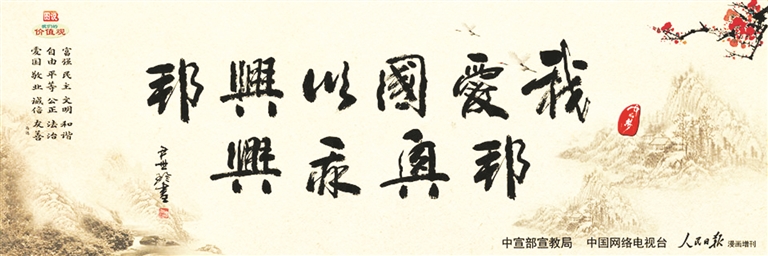 图说
我们的
价值观
富强 民主 文明 和谐
自由 平等 公正 法治
爱国 敬业 诚信 友善
我愛國以興邦
邦興
中宣部宣教局 中国网络电视台 人民日报 漫画增刊